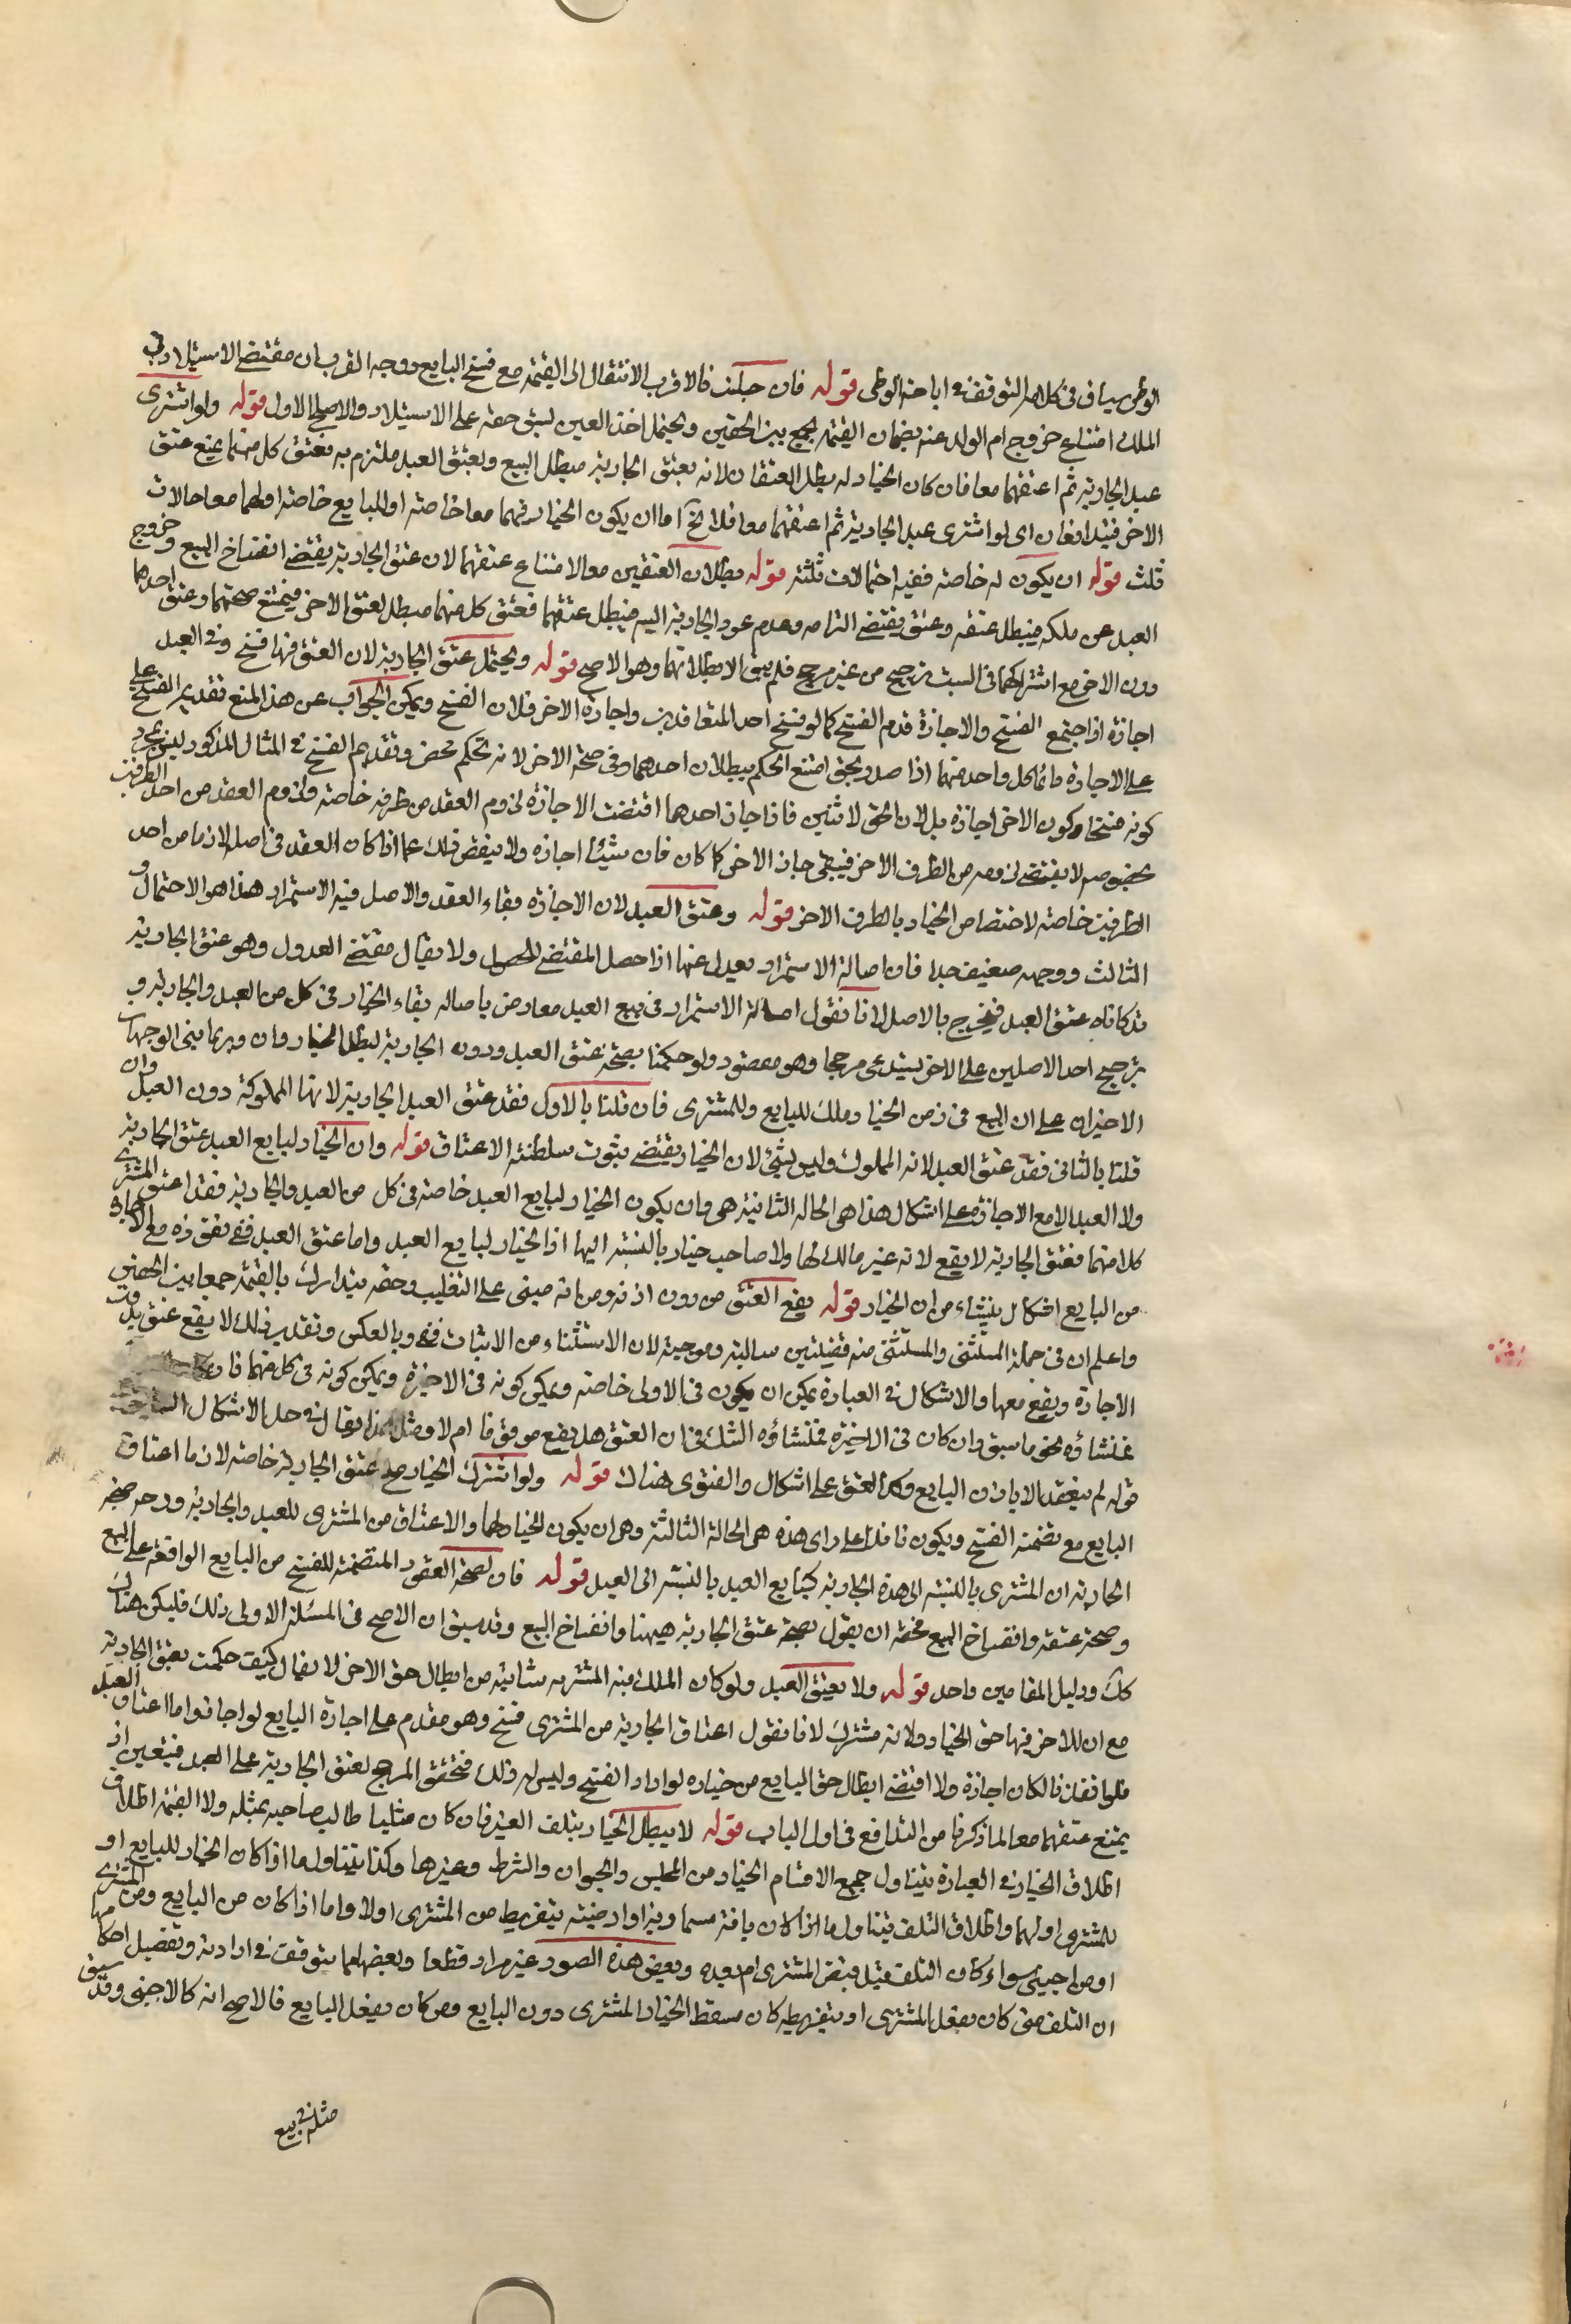 الوطی سیاق فی کلامه التوقف فی اباحة الوطی قوله فان حبلت فالاقرب الانتقال الی القیمة مع فسخ البایع ووجه القرب ان مقتضی الاستیلاد فی
الملک امتناع خروج ام الولد عنه بضمان القیمة یجمع بین الحقین ویحتمل اخذ العین لسبق حقه علی الاستیلاد والاصح الاول قوله ولو اشتری
عبدا بجاریة ثم اعتقهما معا فان کان الخیار له بطل العتقان لانه بعتق الجاریة مبطل للبیع وبعتق العبد ملتزم به فعتق کل منهما یمنع عتق
الاخر فیتدافعان ای لو اشتری عبدا بجاریة ثم اعتقهما معا فلا یخ اما ان یکون الخیار فیهما معا خاصة او للبایع خاصة او لهما معا حالات
ثلث قوله ان یکون له خاصة ففیه احتمالات ثلثة قوله بطلان العتقین معا لامتناع عتقهما لان عتق الجاریة یقتضی انفساخ البیع وخروج
العبد عن ملکه فیبطل عتقه وعتق یقتضی التزامه وعدم عود الجاریة الیه فیبطل عتقهما فعتق کل منهما مبطل لعتق الاخر فیمتنع صحتهما وعتق احدهما
دون الاخر مع اشتراکهما فی السبب ترجیح من غیر مرجح فلم یبق الا بطلانهما وهو الاصح قوله ویحتمل عتق الجاریة لان العتق فیها فسخ وفی العبد
اجازة اذا اجتمع الفسخ والاجازة قدم الفسخ کما لو فسخ احد المتعاقدین واجازه الاخر فلان الفسخ ویمکن الجواب عن هذا المنع فتقدیم الفسخ علی
علی الاجازة قائما کل واحد منهما اذا صدر بحق امتنع الحکم ببطلان احدهما وفی صحة الاخر لانه تحکم محض وتقدیم الفسخ فی المثال المذکور لیس بمجرد
کونه فسخا وکون الاخر اجازة بل لان الحق لاثنین فاذا اجاز احدهما اقتضت الاجازة لزوم العقد من طرفه خاصة ولزوم العقد من احد الطرفین
بخصوصه لا یقتضی لزومه من الطرف الاخر فیبقی جایز الاخر کما کان فان شیئا اجازه ولا ینقض ذلک عما اذا کان العقد فی اصله لازما من احد
الطرفین خاصة لاختصاص الخیار بالطرف الاخر قوله وعتق العبد لان الاجازة بقاء العقد والاصل فیه الاستمرار هذا هو الاحتمال و
الثالث ووجهه ضعیف جدا فان اصالة الاستمرار یعدل عنها اذا حصل المقتضی للحصول ولا یقال مقتضی العدول وهو عتق الجاریة
قد کافاه عتق العبد فیخرج بالاصل لانا نقول اصالة الاستمرار فی بیع العبد معارض باصالة بقاء الخیار فی کل من العبد والجاریة و
ترجیح احد الاصلین علی الاخر یستدعی مرجحا وهو مفقود ولو حکمنا بصحة عتق العبد ودون الجاریة لبطل الخیار وان وبربما بنی الوجهان
الاخیران علی ان البیع فی زمن الخیار وملک للبایع وللمشتری فان قلنا بالاول فقد عتق العبد الجاریة لانها المملوکة دون العبد وان
قلنا بالثانی فقد عتق العبد لانه المملوک ولیس بشیء لان الخیار یقتضی ثبوت سلطنة الاعتاق قوله وان الخیار لبایع العبد عتق الجاریة
ولا العبد الا مع الاجازة علی اشکال هذا هی الحالة الثانیة هی وان یکون الخیار لبایع العبد خاصة فی کل من العبد والجاریة فقد اعتق المشتری
کلا منهما فعتق الجاریة لا یقع لانه غیر مالک لها ولا صاحب خیار بالنسبة الیها اذ الخیار لبایع العبد واما عتق العبد ففی نفوذه مع الاجازة
من البایع اشکال ینشاء من ان الخیار قوله یقع العتق من دون اذنه ومن انه مبنی علی التغلیب وحقه یتدارک بالقیمة جمعا بین الحقین
واعلم ان فی جملة المستثنی والمستثنی منه قضیتین سالبة وموجبة لان الاستثناء من الاثبات نفی وبالعکس وتقدیر ذلک لا یقع عتق بدون
الاجازة ویقع معها والاشکال فی العبارة یمکن ان یکون فی الاولی خاصة ویمکن کونه فی الاخیرة ویمکن کونه فی کل منهما فان کان
فمنشاؤه نحو ما سبق وان کان فی الاخیرة فمنشاؤه الشک فی ان العتق هل یقع موقوفا ام لا ومثل هذا یقال فی حل الاشکال
قوله لم ینفذ الا باذن البایع وکذا العتق علی اشکال والفتوی هناک قوله ولو اشترک الخیار صح عتق الجاریة خاصة لان ما اعتاق
البایع مع تضمنه الفسخ ویکون نافذا علی رای هذه هی الحالة الثالثة وهی ان یکون الخیار لهما والاعتاق من المشتری للعبد والجاریة ووجه صحة
الجاریة ان المشتری بالنسبة الی هذه الجاریة کبایع العبد بالنسبة الی العبد قوله فان لصحة العقود المتضمنة للفسخ من البایع الواقعة علی البیع
وصحة عتقه وانفساخ البیع فحقه ان یقول بصحة عتق الجاریة هیهنا وانفساخ البیع وقد سبق ان الاصح فی المسئلة الاولی ذلک فلیکن هناک
کک ودلیل المقامین واحد قوله ولا یعتق العبد ولو کان الملک فیه المشتریه مثابته من ابطال حق الاخر لا یقال کیف حکمت بعتق الجاریة
مع ان للاخر فیها حق الخیار ولانه مشترک لانا نقول اعتاق الجاریة من المشتری فسخ وهو مقدم علی اجازة البایع لو اجاز واما اعتاق العبد
فلو انفذنا لکان اجازة ولا اقتضی ابطال حق البایع من خیاره لو اراد الفسخ ولیس له ذلک فتحقق المرجح لعتق الجاریة علی العبد فیتعین اذ
یمتنع عتقهما معا لما ذکرنا من التدافع فی اول الباب قوله لا یبطل الخیار بتلف العین فان کان مثلیا طالب صاحبه بمثله والا القیمة اطلاق
اطلاق الخیار فی العبارة یتناول جمیع الاقسام الخیار من المجلس والحیوان والشرط وغیرها وکذا یتناول ما اذا کان الخیار للبایع او
للمشتری او لهما واطلاق التلف یتناول ما اذا کان بافة سماویة او ارضیة بتفریط من المشتری اولا واما اذا کان من البایع ومن المشتری
او من اجنبی سواء کان التلف قبل قبض المشتری ام بعده وبعض هذه الصور غیر مراد قطعا وبعضها مما یتوقف فی ارادته وتفصیل احکامها
ان التلف متی کان بفعل المشتری او بتفریطه کان مسقط الخیار المشتری دون البایع ومن کان بفعل البایع فالاصح انه کالاجنبی وقد سبق
مثله فی بیع